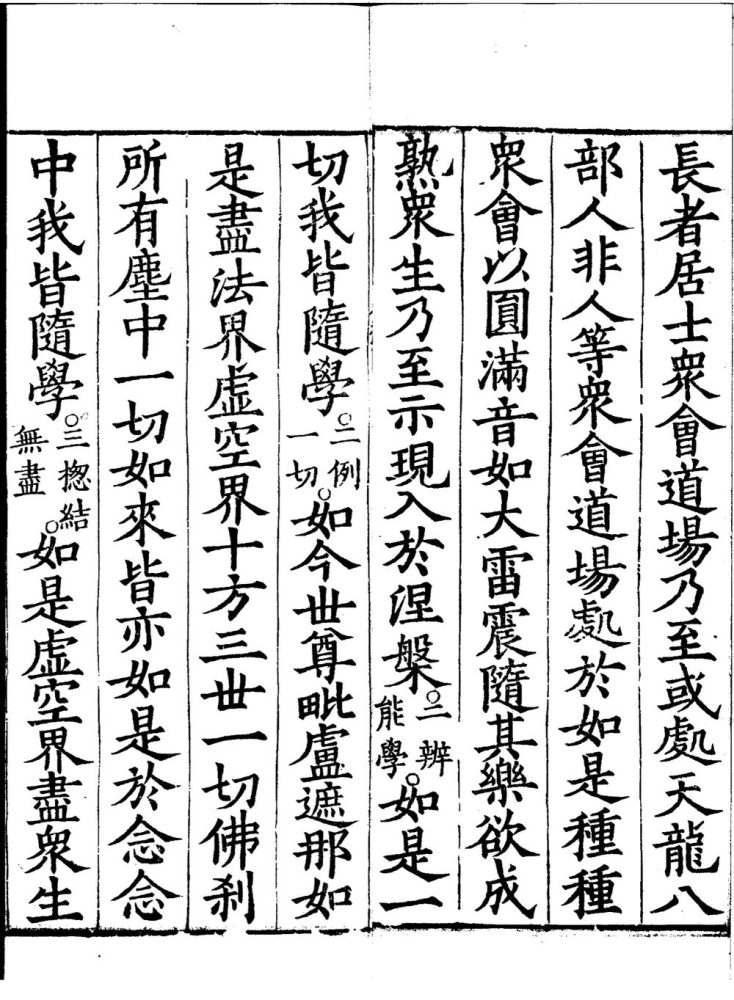 長者居士衆會道場乃至或處天龍八
部人非人等衆會道場處於如是種種
衆會以圓滿音如大雷震隨其樂欲成
熟衆生乃至示現入於涅槃○二辨能學○如是一
切我皆隨學○二例一切○如今世尊毗盧遮那如
是盡法界虛空界十方三世一切佛刹
所有塵中一切如來皆亦如是於念念
中我皆隨學○三揔結無盡○如是虛空界盡衆生